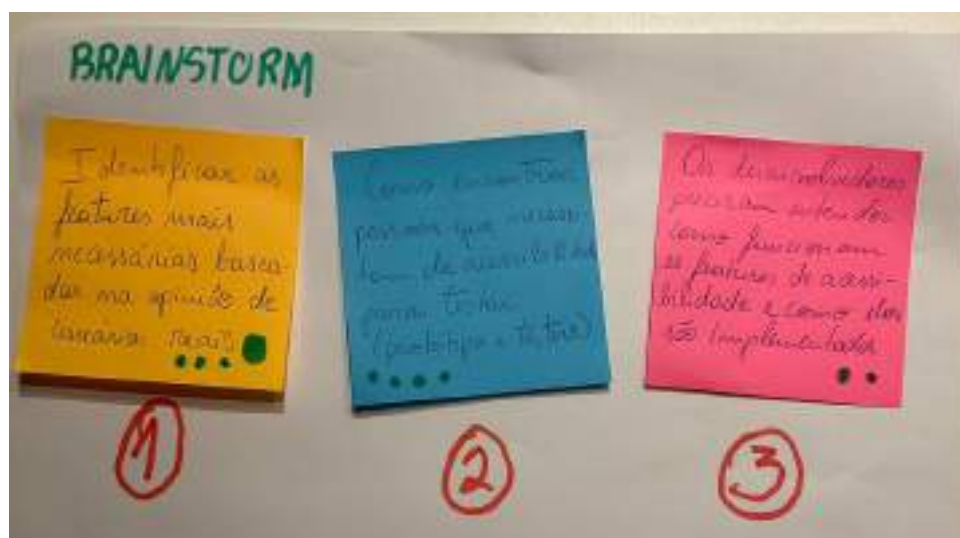 BRAINSTORM
Identificar as
features mais
necessárias basea-
das na opinião de
usuários reais
Como encontrar
pessoas que necessi-
tam de acessibilidade
para testar
(protótipo e teste)
Os desenvolvedores
precisam entender
como funcionam
as features de acessi-
bilidade e como elas
são implementadas
1
2
3